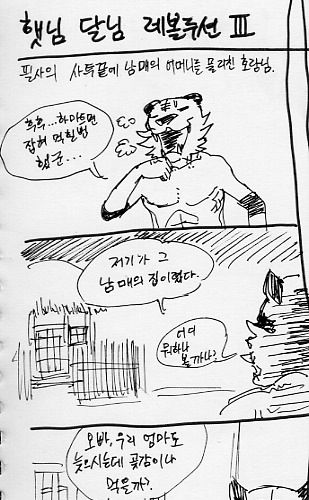 햇님 달님 레볼루션 III
필사의 사투끝에 남매의 어머니를 물리친 호랑님.
후후...하마트면
잡혀 먹힐뻔
했군...
저기가 그
남매의 집이렸다.
어디
뭐하나
볼까나?
오빠, 우리 엄마도
늦으시는데 곶감이나
먹을까?